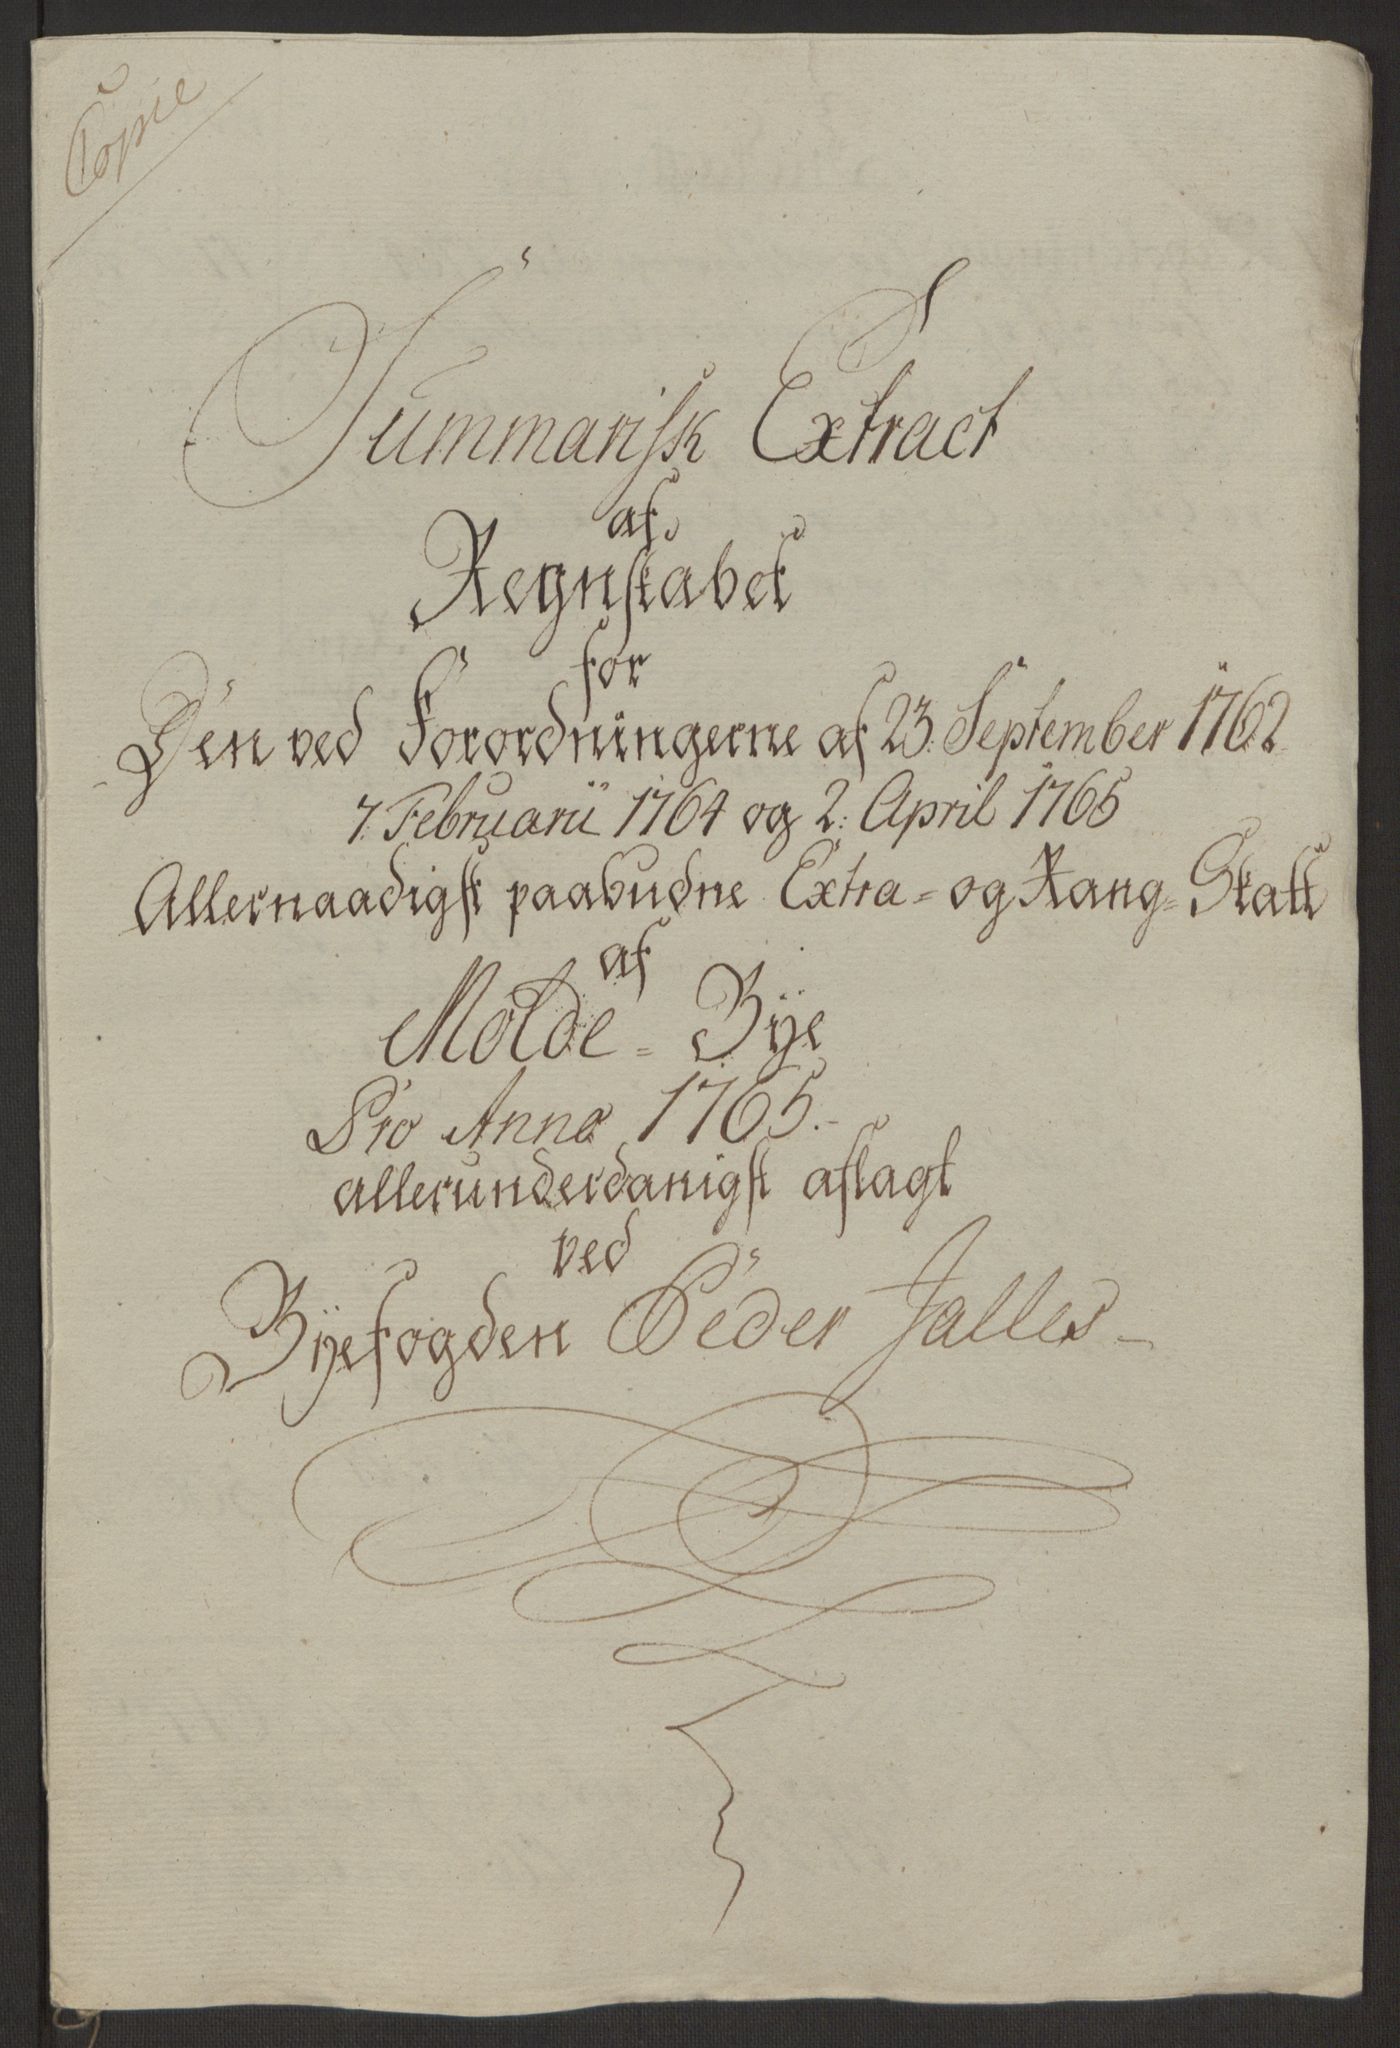 Copie
Summarisk Extract
af
Regnskabet
for
Den ved Forordningerne af 23. September 1762
7. Februarii 1764 og 2: April 1765
Allernaadigst paabudne Extra= og Rang=Skatt
af
Molde=Bÿe
Pro Anno 1765.-
allerunderdanigst aflagt
ved
Bÿefogden Peder Jalles-